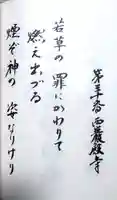 第五番 西巌殿寺
若草の 罪にかわりて
燃え出づる
煙ぞ神の 姿なりけり